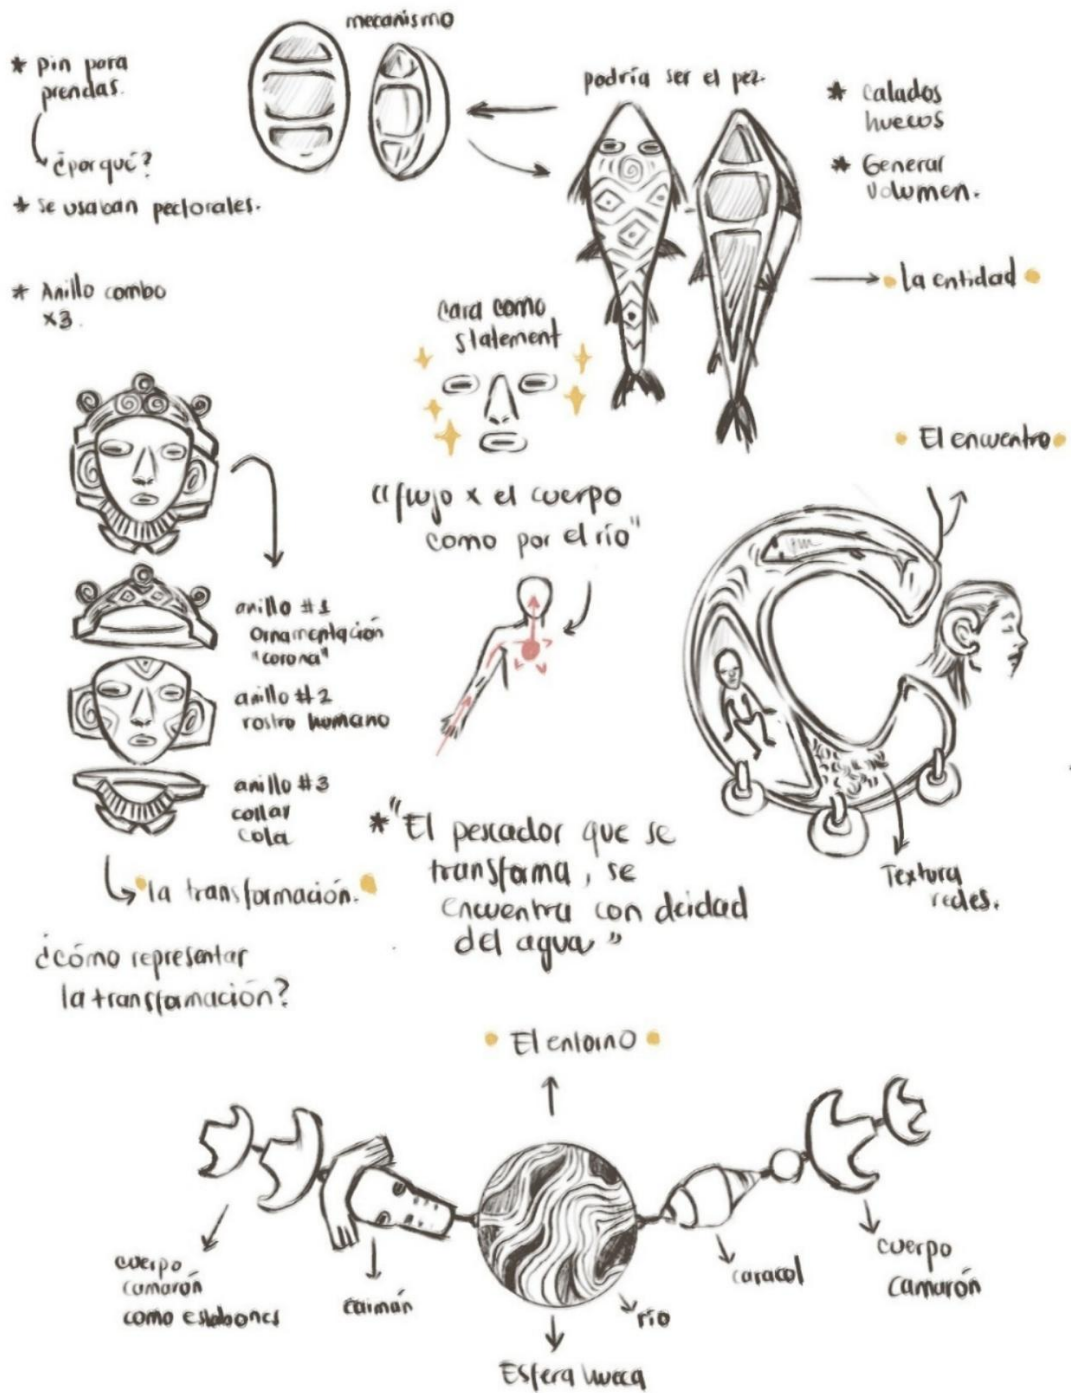 mecanismo
* pin para
prendas.
¿por qué?
* se usaban pectorales.
* Anillo combo
x3.
podría ser el pez.
* calados
huecos
* Generar
volumen.
• la entidad •
cara como
statement
• El encuentro •
"flujo x el cuerpo
como por el río"
anillo #1
ornamentación
"corona"
anillo #2
rostro humano
anillo #3
collar
cola
• la transformación. •
¿cómo representar
la transformación?
* "El pescador que se
transforma, se
encuentra con deidad
del agua"
Textura
redes.
• El entorno •
cuerpo
camarón
como eslabones
caimán
Esfera hueca
río
caracol
cuerpo
camarón